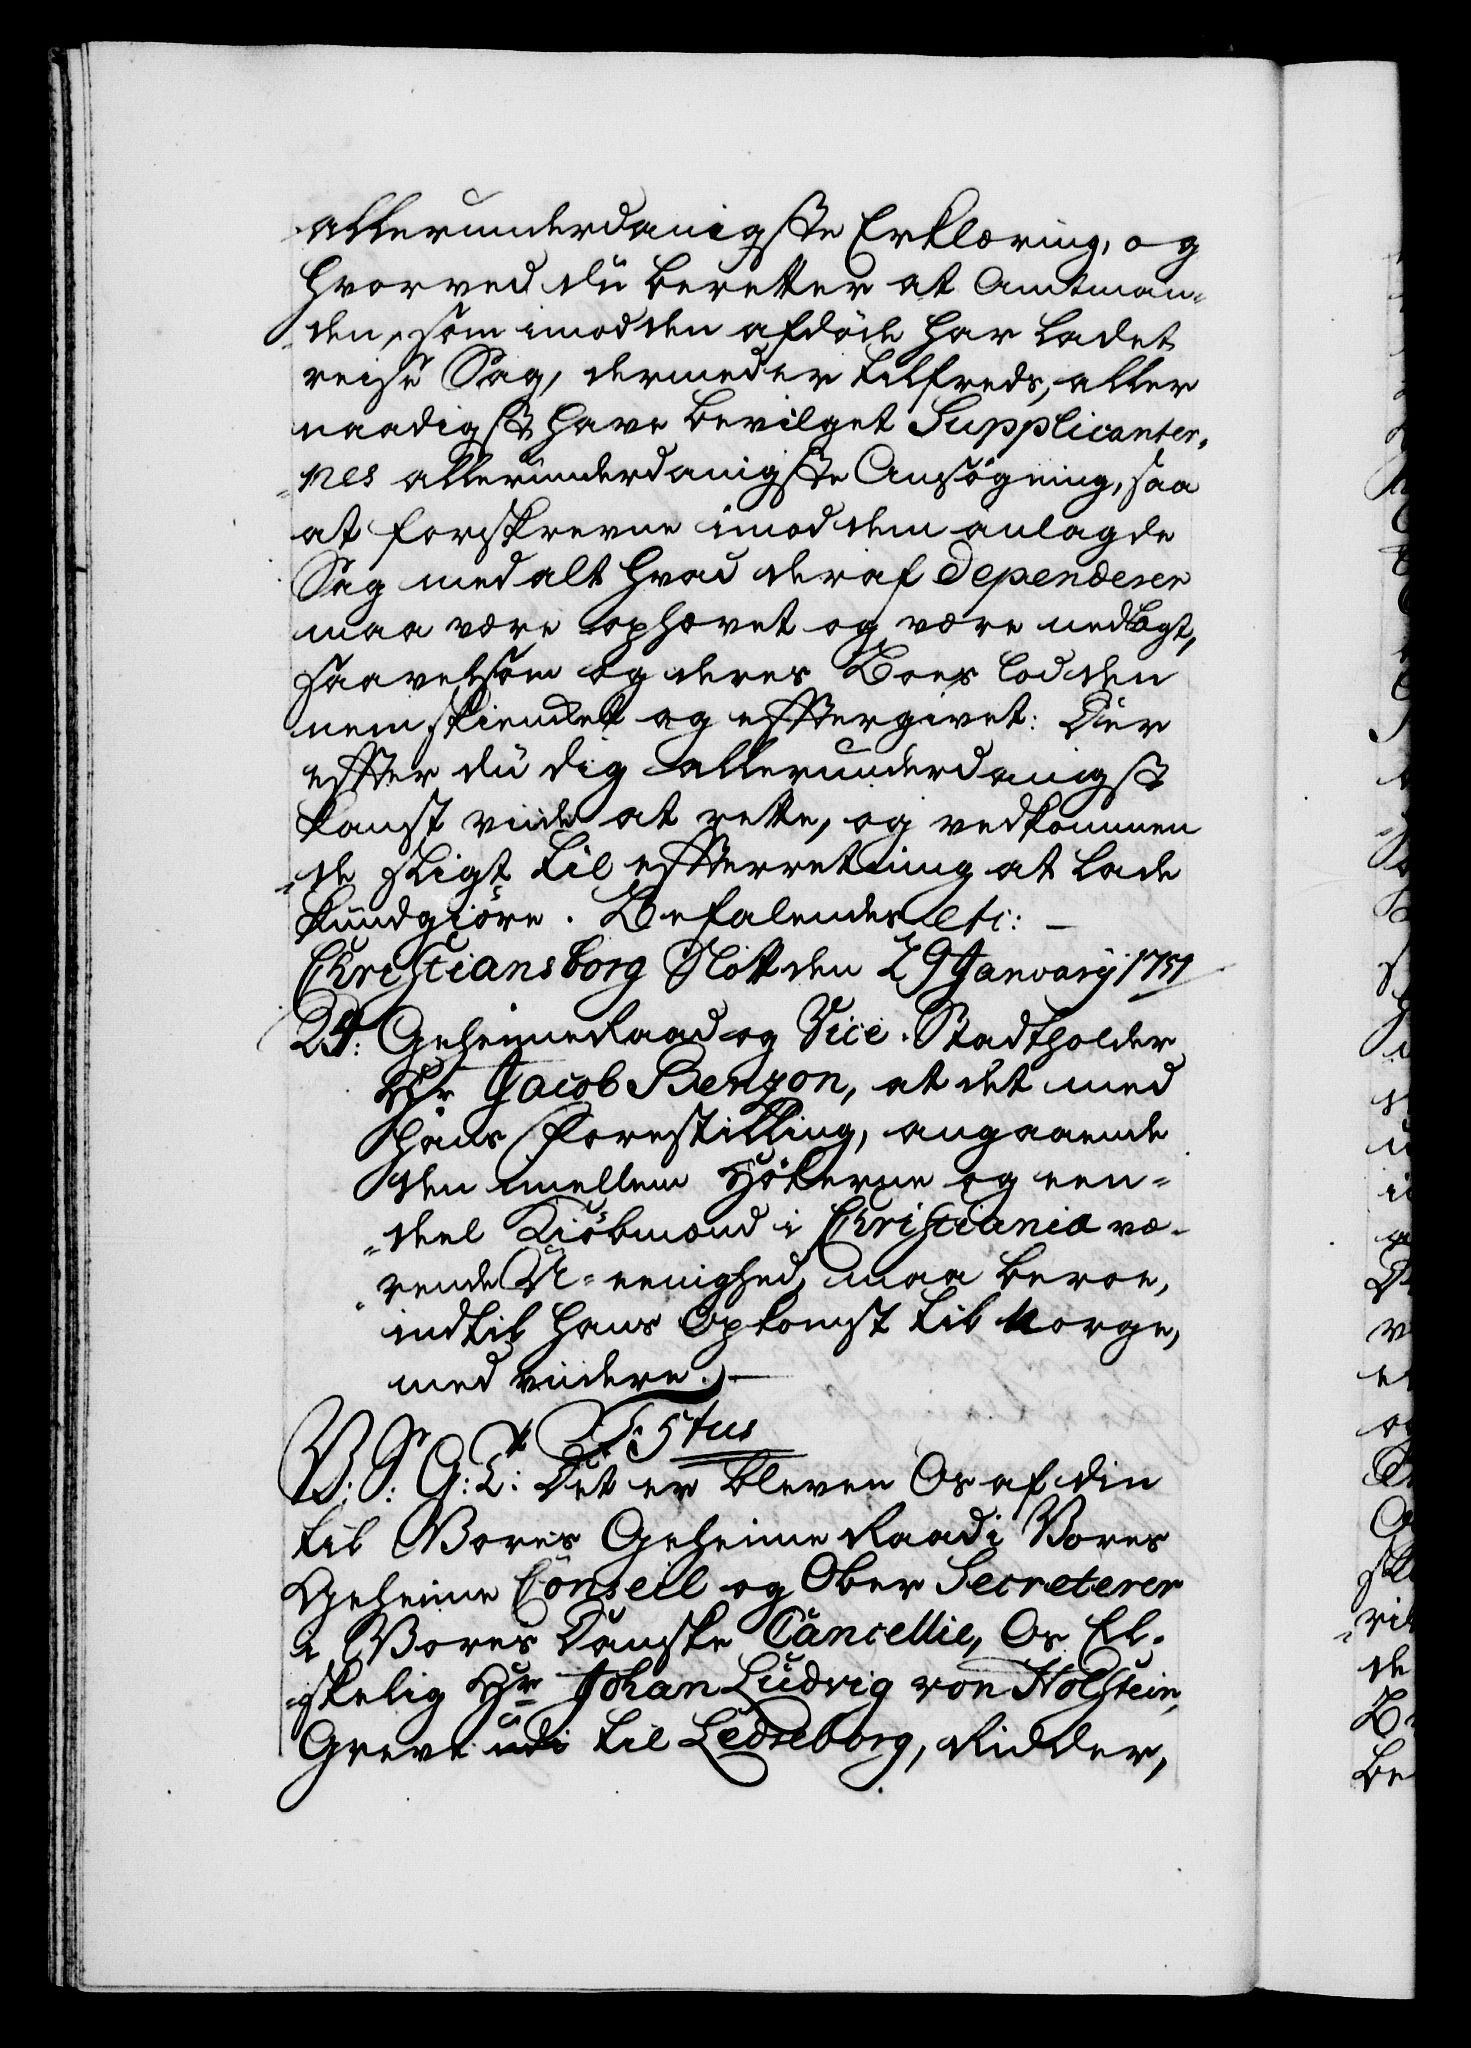 allerunderdanigste Erklæring, og
hvorved du beretter at Amtman-
den, som imod den afdöde har ladet
reise Sag, dermed er tilfreds, aller
naadigst have bevilget Supplicanter-
nes allerunderdanigste Ansögning, saa
at forskrevne imod dem anlagde
Sag med alt hvad deraf dependerer
maa være ophævet og være nedlagt,
saavelsom og deres Boes Lodden
uemskiendet og efftergivet: Der
effter du dig allerunderdanigst
kanst viide at rette, og vedkommen
de sligt til effterretning at lade
kundgiöre. Befalendes etc:
Christiansborg Slott den 29 January 1751
24. GeheimeRaad og Vice-Stadtholder
Hr Jacob Benzon, at det med
hans Forestilling, angaaende
den imellem Hökerne og een-
deel Kiöbmænd i Christiania væ-
rende U-eenighed, maa beroe,
indtil hans Opkomst til Norge,
med viidere.
F: 5tus
V: S: G: T: Det er bleven Os af din
til Vores Geheime Raad i Vores
Geheime Conseil og Ober Secreterer
i Vores Danske Cancellie, Os El-
skelig Hr Johan Ludvig von Holstein,
Greve udi til Ledreborg, Ridder,